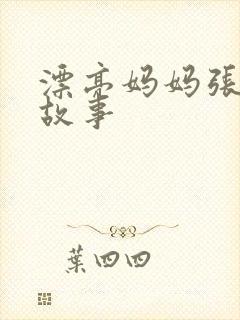 漂亮妈妈張
故事
葉四四